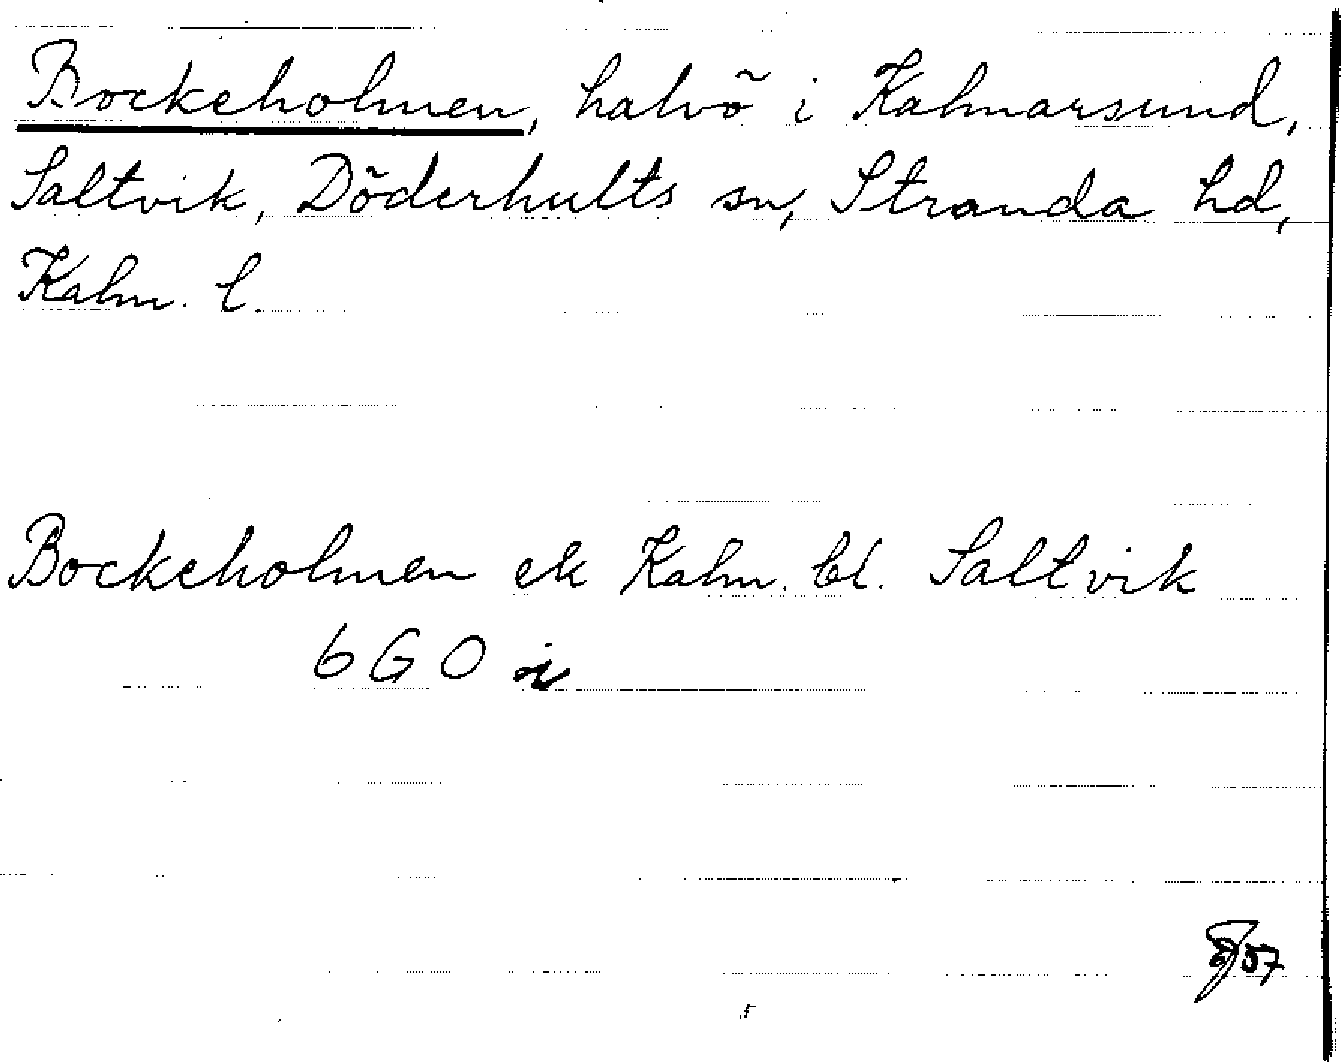 Bockeholmen, halvö i Kalmarsund,
Saltvik, Döderhults sn, Stranda hd,
Kalm. l.
Bockeholmen ek Kalm. bl. Saltvik
6 G O i
57